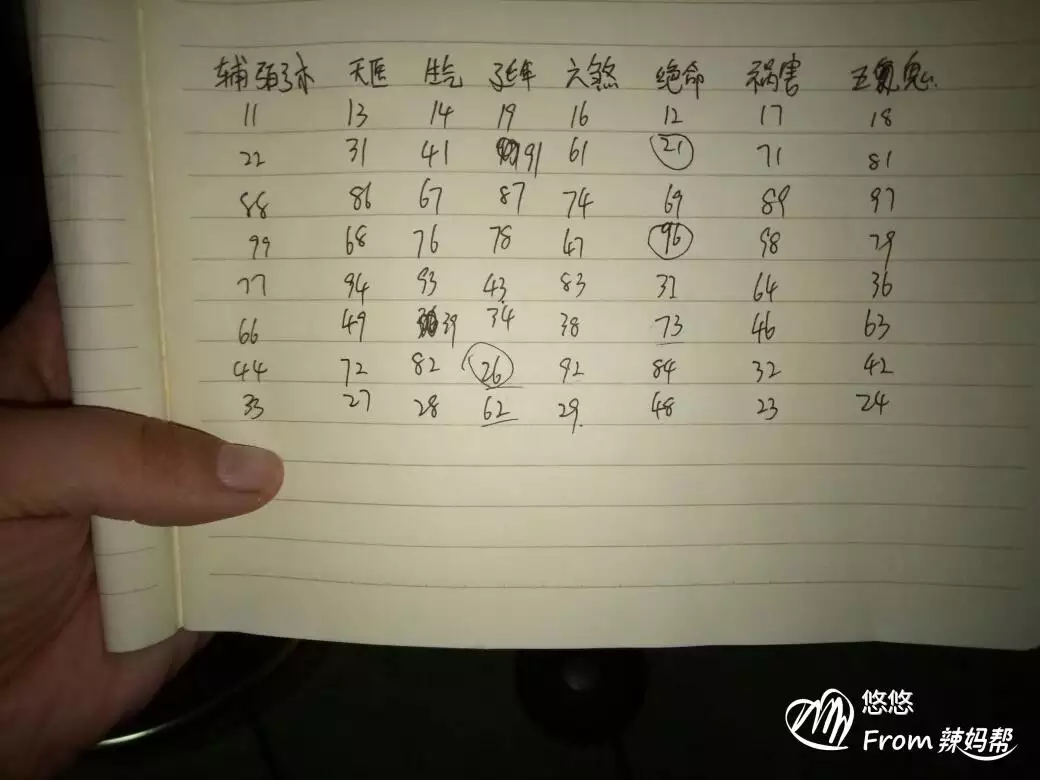 辅 天医 生气 延年 六煞 绝命 祸害 五鬼
11 13 14 19 16 12 17 18
22 31 41 91 61 21 71 81
88 86 67 87 74 69 89 97
99 68 76 78 47 96 98 79
77 94 93 43 83 37 64 36
66 49 39 34 38 73 46 63
44 72 82 26 92 84 32 42
33 27 28 62 29. 48 23 24
悠悠
From 辣妈帮